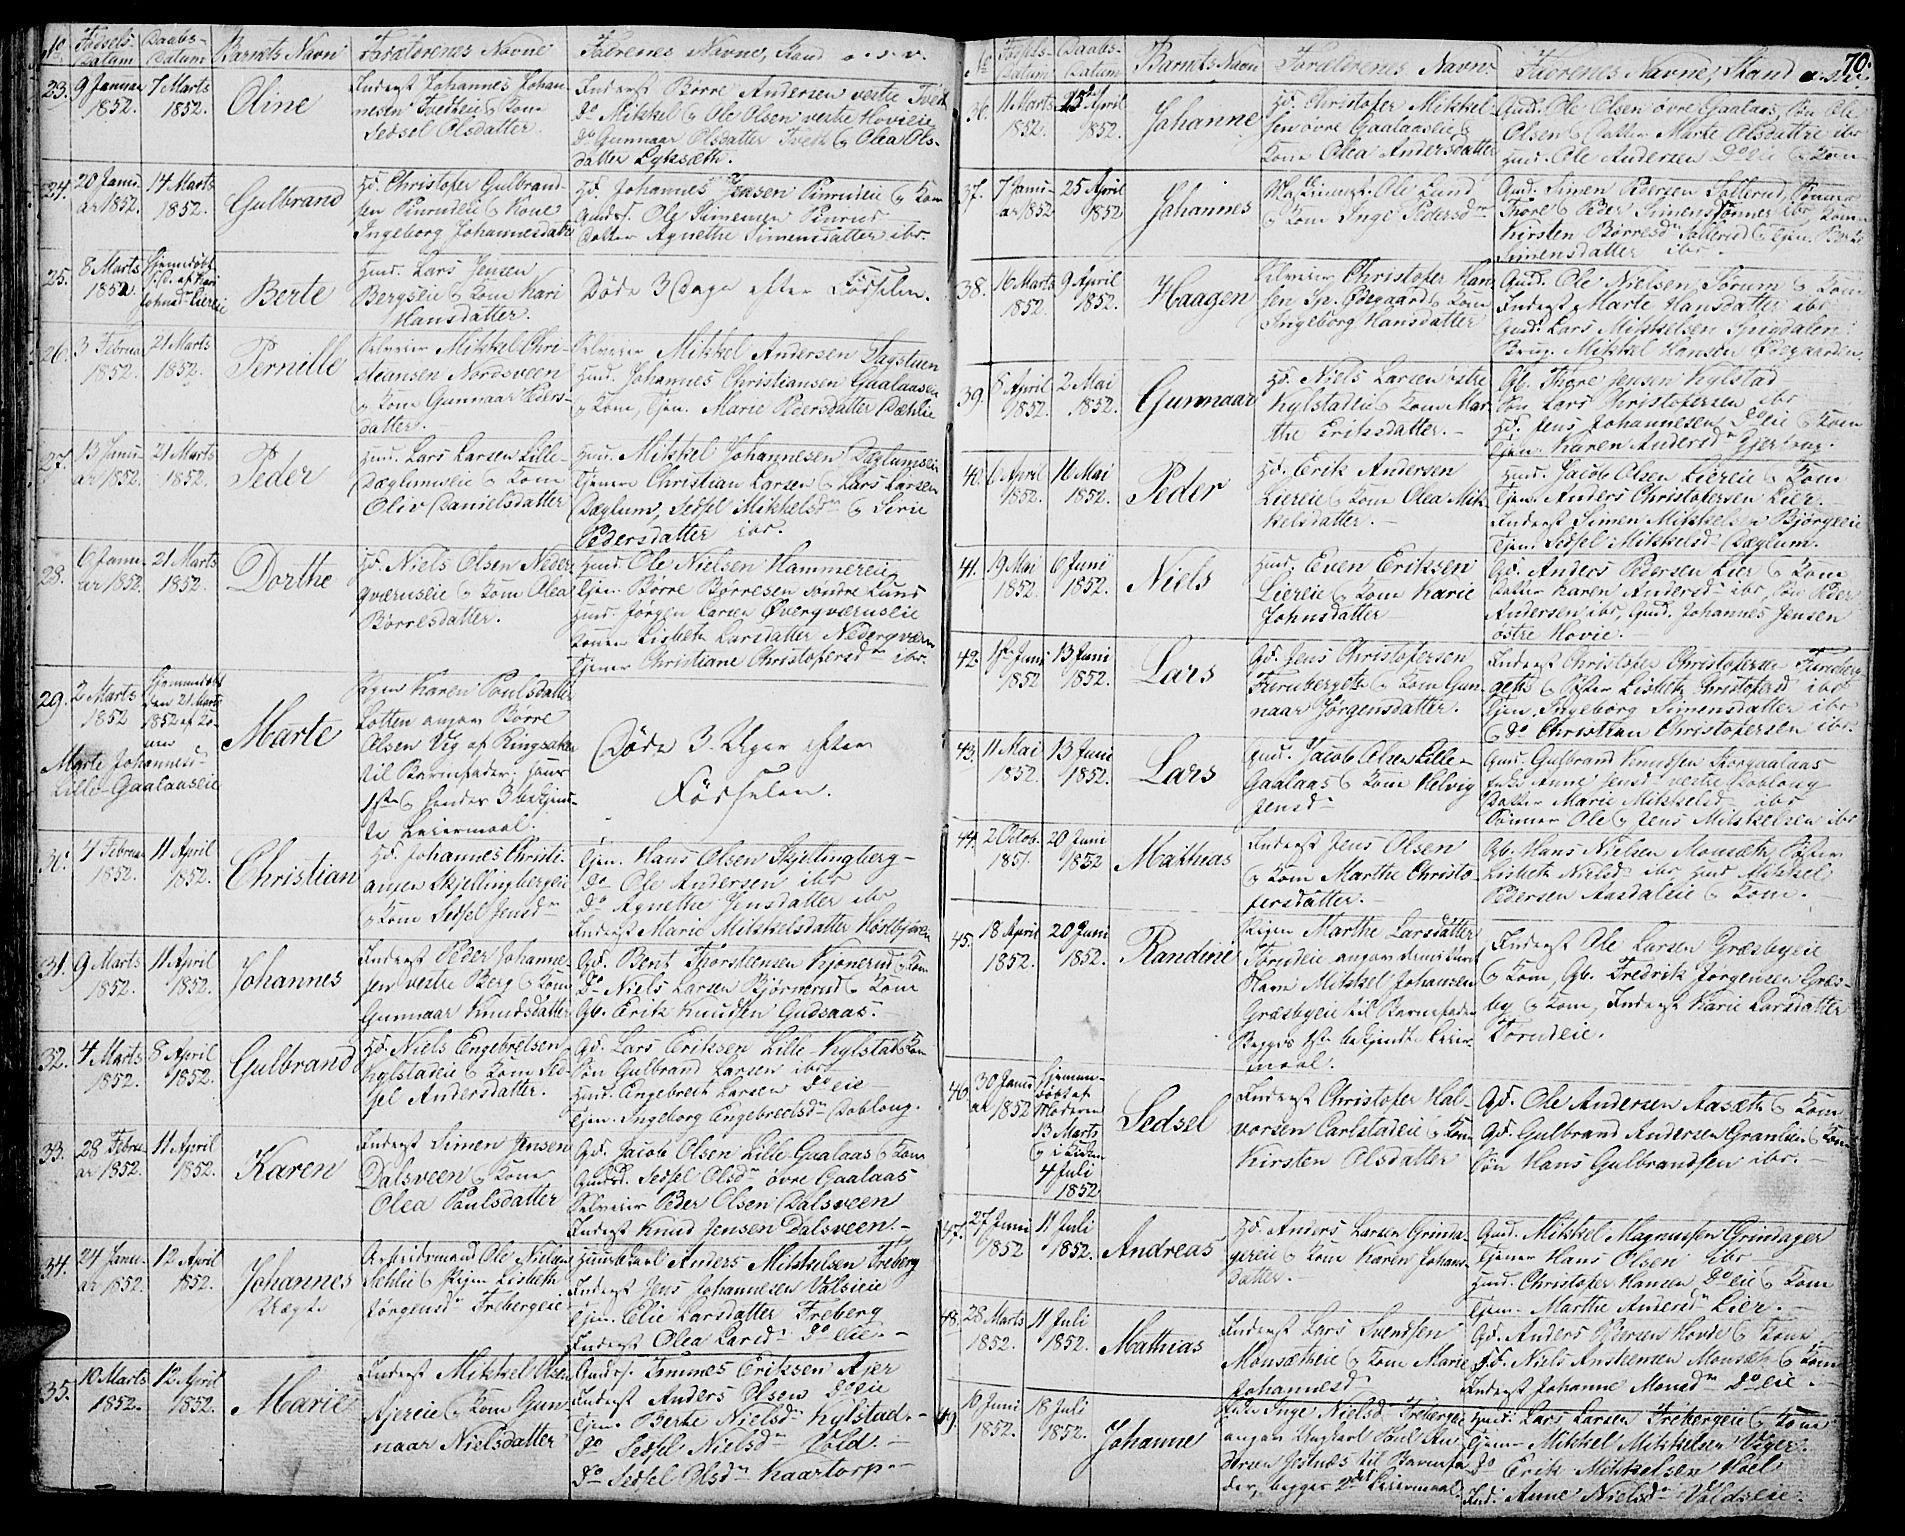 No Fødsels-Datum Daabs-Datum Barnets Navn Forældrenes Navne Faddernes Navne, Stand o. s. v.
23. 9 Januar 1852. 7 Marts 1852. Oline
Inderst Johannes Johan-
nesen Tvedteie & Kone
Sedsel Olsdatter.
Inderst Børre Andersen vestre Tvet
Do Mikkel & Ole Olsen vestre Hovieie
Do Gunnaar Olsdatter Tveth & Olea Ols-
datter Lyksæth.
24. 20 Janu-
ar 1852. 14 Marts 1852. Gulbrand
Hd. Christofer Gulbrand-
sen Pinrudeie & Kone
Ingeborg Johannesdatter
Hd. Johannes Jensen Pinrudeie & Kone
Gaards. Ole Simensen Pinrud
Datter Agnethe Simensdatter ibr.
25. 8 Marts 1852. Hjemmedøbt
Berte
Huusd. Lars Jensen
Bergseie & Kone Kari
Hansdatter.
Døde 3 Dage efter Fødselen.
26. 3 Februar 1852. 21 Marts 1852. Pernille
Selveier Mikkel Chri-
stiansen Nordsveen
& Kone Gunnaar Peders-
datter.
Selveier Mikkel Andersen Dagstuen
Huusd. Johannes Christiansen Gaalaaseie
& Kone, Tjen. Marie Pedersdatter Dæhlie
27. 13 Janu-
ar 1852. 21 Marts 1852. Peder
Huusd. Lars Larsen Lille-
Dæglumseie & Kone
Oliv Danielsdatter
Huusd. Mikkel Johannesen Dæglumseie
Tjener Christian Larsen & Lars Larsen
Dæglum, Sedsel Mikkelsdr & Sirie
Pedersdatter ibr.
28. 6 Janu-
ar 1852. 21 Marts 1852. Dorthe
Hd. Niels Olsen Neder-
qværnseie & Kone Olea
Børresdatter.
Huusd. Ole Nielsen Hammereie
Tjen. Børre Børresen søndre Lund
Huusd Jørgen Larsen Øverqværnseie
Konen Lisbeth Larsdatter Nederqværn
Tjener Christiane Christofersdr ibr.
29. 2 Marts 1852 Hjemmedøbt
den 21 Marts
1852 af Ko-
nen
Marte Johannesd-
Lille-Gaalaaseie
Marte
Pigen Karen Poulsdatter
Lotten angav Børre
Olsen Vig af Ringsaker
til Barnefader; hans
1ste & hendes 3 bekjend-
te Leiermaal.
Døde 3 Uger efter
Fødselen.
30. 4 Februar 1852. 11 April 1852. Christian
Hd. Johannes Christi-
ansen Skjellingbergeie
& Kone Sedsel Jensdr
Tjen. Hans Olsen Skjellingberg-
Do Ole Andersen ibr
Do Agnethe Jensdatter ibr
Inderst Marie Mikkelsdatter
31. 9 Marts 1852. 11 April 1852. Johannes
Inderst Peder Johanne-
sen vestre Berg & Kone
Gunnaar Knudsdatter
Gd. Bent Thorsteensen Kjonerud & Kone
Do Niels Larsen Bjørnerud & Kone
Gb. Erik Knudsen Gudsaas.-
32. 4 Marts 1852. 8 April 1852. Gulbrand
Hd. Niels Engebretsen
Kylstadeie & Kone Sed-
sel Andersdatter.
Gd. Lars Eriksen Lille-Kylstad & Kone
Søn Gulbrand Larsen ibr
Huusd. Engebret Larsen Do eie-
Tjen. Ingeborg Engebretsdr Dobloug.
33. 28 Febru-
ar 1852. 11 April 1852. Karen
Inderst Simen Jensen
Dalsveen & Kone
Olea Poulsdatter
Gd. Jacob Olsen Lille Gaalaas & Kone
Gaards. Sedsel Olsdr øvre Gaalaas
Selveier Peder Olsen Dalsveen
Inderst Knud Jensen Dalsveen.-
34. 24 Janu-
ar 1852. 12 April 1852. Johannes
Uægte
Arbeidsmand Ole Nielsen
Sehlie & Pigen Lisbeth
Jørgensdr Frebergeie-
Huusbkarl Anders Mikkelsen Freberg
Inderst Jens Johannesen Volseie
Tjen. Elie Larsdatter Freberg
Inderst Olea Larsdr Do eie.-
35. 10 Marts 1852. 12 April 1852. Marie
Inderst Mikkel Olsen
Ajereie & Kone Gun-
naar Nielsdatter
Gaards. Tommes Eriksen Ajer
Inderst Anders Olsen Do eie
Tjen. Berte Nielsdr Kylstad.-
Do Sedsel Nielsdr Vold.-
Do Sedsel Olsdr Kaartorp.-
70.
No Fødsels-Datum Daabs-Datum Barnets Navn Forældrenes Navne Faddernes Navne, Stand o. s. v.
36. 11 Marts 1852. 25 April 1852. Johanne
Hd. Christofer Mikkel-
sen øvre Gaalaaseie &
Kone Olea Andersdatter
Gud. Ole Olsen øvre Gaalaas, Søn Ole
Olsen & Datter Marte Olsdatter ibr
Huusd. Ole Andersen Do eie & Kone
37. 7 Janu-
ar 1852 25 April 1852 Johannes
Ole Lund
& Kone Inge Pedersdr
Gud. Simen Pedersen Sollerud, Sønner
Thore & Peder Simenssønner ibr, Kone
Kirsten Børresdr Sollerud & Tjen. Berte
Simensdatter ibr.
38. 16 Marts 1852. 9 April 1852. Haagen
Selveier Christofer Han-
sen Sp. Ødegaard & Kone
Ingeborg Hansdatter
Gud. Ole Nielsen Sørum & Kone
Inderst Marte Hansdatter ibr
Gud. Lars Mikkelsen Spindalen
Brug. Mikkel Hansen Ødegaarden
39. 8 April 1852. 2 Mai 1852. Gunnaar
Hd. Niels Larsen østre
Kylstadeie & Kone Mar-
the Eriksdatter.-
Gb. Thore Jensen Kylstad
Søn Lars Christofersen ibr
Hd. Jens Johannesen Do eie & Kone
Tjen. Karen Andersdr Gjerlaug.
40. 6 April 1852. 11 Mai 1852. Peder
Hd. Erik Andersen
Liereie & Kone Olea Mik-
kelsdatter.-
Huusd. Jacob Olsen Liereie & Kone
Tjen. Anders Christofersen Lier.-
Inderst Simen Mikkelsen Bjørgeeie
Tjen. Sedsel Mikkelsd- Dæglum.
41. 19 Mai 1852. 6 Juni 1852. Niels
Huusd. Even Eriksen
Liereie & Kone Karie
Johnsdatter.-
Gd. Anders Pedersen Lier & Kone
Datter Karen Andersd- ibr, Søn Peder
Andersen ibr, Gud. Johannes Jensen
østre Hovie.-
42. 1ste Juni 1852 13 Juni 1852. Lars
Gd. Jens Christofersen
Furubergeth & Kone Gun-
naar Jørgensdatter.
Inderst Christofer Christofersen Furuberg-
geth & Søster Lisbeth Christofersd ibr
Tjen. Ingeborg Simensdatter ibr
& Do Christian Christofersen ibr.
43. 11 Mai 1852. 13 Juni 1852. Lars
Gud. Jacob Olsen Lille-
Gaalaas & Kone Helvig
Jensd-
Gud. Gulbrand Knudsen Storgaalaas
Enke Anne Jensd- vestre Dobloug
Datter Marie Mikkelsd- ibr
Sønner Ole & Jens Mikkelsen ibr
44. 2 Octob. 1851. 20 Juni 1852 Mathias
Inderst Jens Olsen
& Kone Marthe Christo-
fersdatter.-
Gb. Hans Nielsen Monsæth, Søster
Lisbeth Nielsd- ibr Huusd Mikkel
Pedersen Aasdaleie & Kone.-
45. 18 April 1852. 20 Juni 1852. Randine
Pigen Marthe Larsdatter
Torudeie angav
Mikkel Johansen
Græsbyeie til Barnefader
Begges 1ste bekjendte Leier-
maal.
Inderst Ole Larsen Græsbyeie
& Kone, Gb. Fredrik Jørgensen Græs-
by & Kone, Inderst Karie Larsdatter
Torudeie.
46. 30 Janu-
ar 1852 Hjemme-
døbt af
Moderen
13 Marts
& i Kirken
4 Juli
1852
Sedsel
Inderst Christofer Hal-
vorsen Carlstadeie & Kone
Kirsten Olsdatter
Gd. Ole Andersen Aasæth & Kone
Gd. Gulbrand Andersen Granlien & Kone
Søn Hans Gulbrandsen ibr.-
47. 27 Juni 1852 11 Juli 1852. Andreas
Hd. Anders Larsen Grinda-
gereie & Kone Karen Johans-
datter.
Gud. Mikkel Magnussen Grindager
Tjener Hans Olsen ibr
Huusd. Christofer Hansen Do eie & Kone
Tjen. Marthe Andersdr Lier.-
48. 28 Marts 1852. 11 Juli 1852. Mathias
Inderst Lars Svendsen
Monsætheie & Kone Marie
Johannesd-
Gd. Anders Børresen Hovde & Kone
Hd. Niels Anstensen Monsæth & Kone
Inderst Johanne Monsdr Do eie.-
49. 10 Juni 1852. 18 Juli 1852. Johanne
Inge Nielsd- Frebergeie
angav Ungkarl Poul An-
dersen Jestnæs til Barnefa-
der, begges 2det Leiermaal.
Huusd. Lars Larsen Frebergeie & Kone
Tjener Mikkel Mikkelsen Viger.
Do Erik Mikkelsen Hoel
Ind. Anne Nielsdr Voldseie.